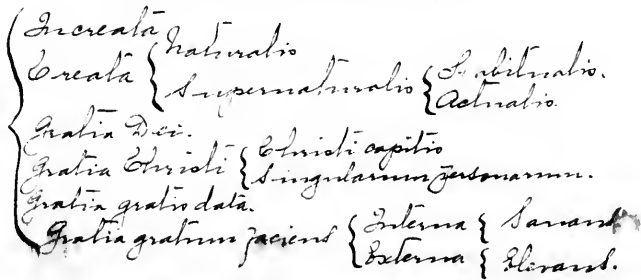 Increata
Creata { Naturalis
Supernaturalis { Habitualis.
Actualis.
Gratia Dei.
Gratia Christi { Christi capitis
Singularum personarum.
Gratia gratis data.
Gratia gratum faciens { Interna { Sanans
Externa { Elevans.